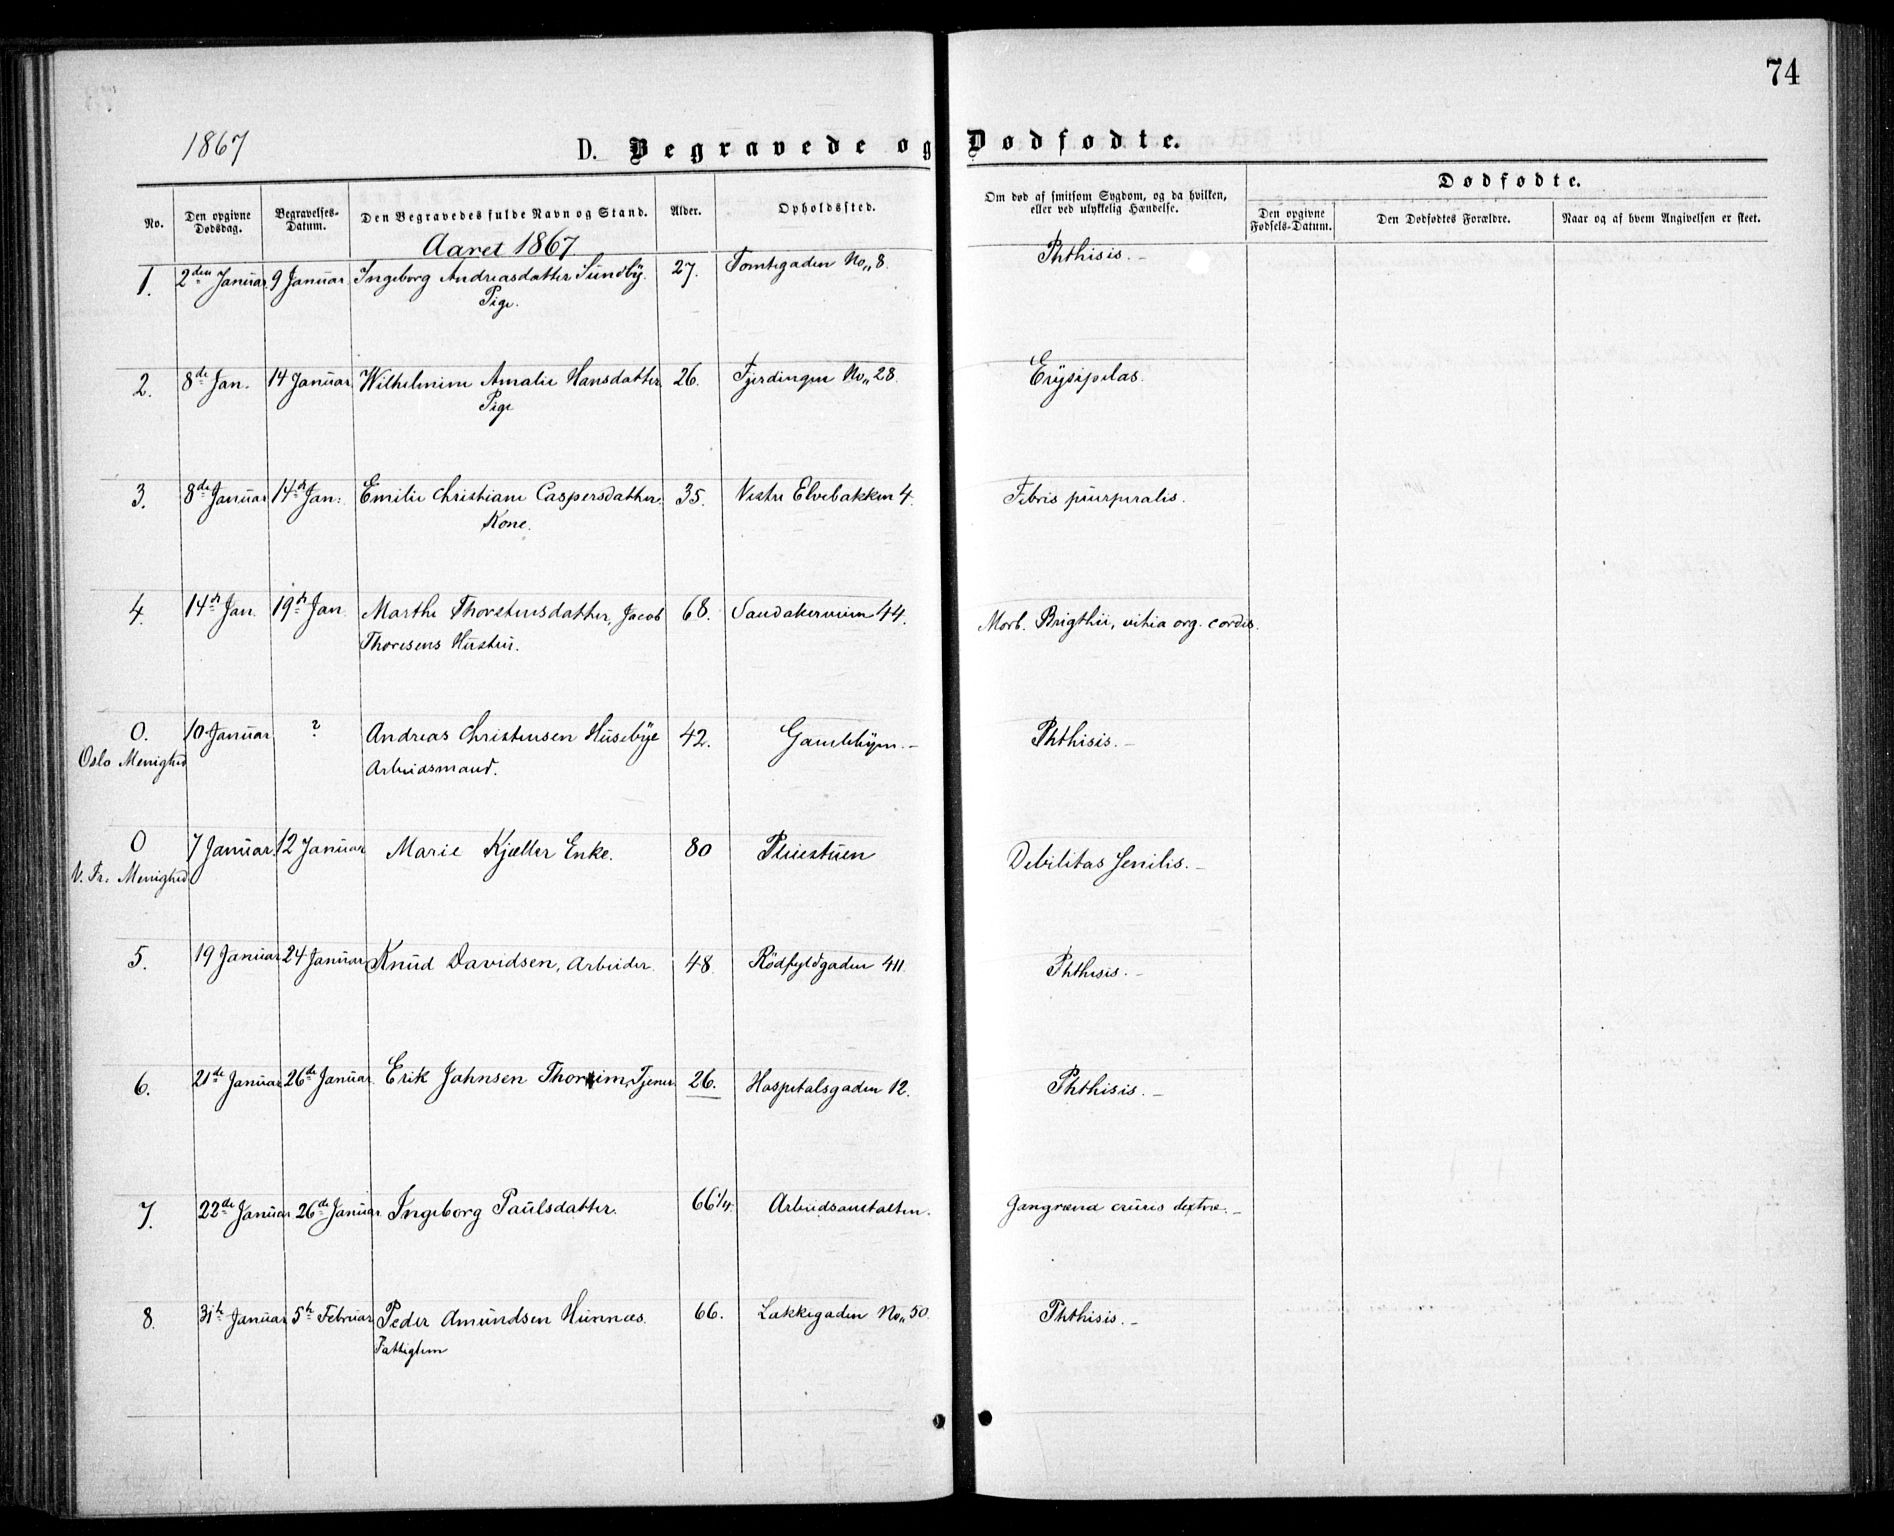 74
1867
D. Begravede og Dødfødte.
No. Den opgivne Dødsdag. Begravelses-Datum. Den Begravedes fulde Navn og Stand. Alder. Opholdssted. Om død af smitsom Sygdom, og da hvilken, eller ved ulykkelig Hændelse. Dødfødte.
Den opgivne Fødsels-Datum. Den Dødfødtes Forældre. Naar og af hvem Angivelsen er skeet.
Aaret 1867
1. 2den Januar 9 Januar Ingeborg Andreasdatter Sundby. 27. Tomtegaden No„ 8. Phthisis. -
Pige.
2. 8de Jan. 14 Januar Wilhelmine Amalie Hansdatter. 26. Fjerdingen No„ 28. Erysipelas.
Pige
3. 8de Januar 14de Jan: Emilie Christiane Caspersdatter. 35. Vestre Elvebakken 4. Febris puerperalis.
Kone.
4. 14de Jan. 19de Jan. Marthe Thorstensdatter, Jacob 68. Sandakerveien 44. Morb. Brigthii, vitia org. cordis.
Thoresens Hustru.
0. 10 Januar ? Andreas Christensen Husebye 42. Gamlebyen. - Phthisis. -
Oslo Menighed Arbeidsmand.
0 7 Januar. 12 Januar Marie Kjæller Enke. 80 Debilitas senilis. -
V. Fr. Menighed
5. 19 Januar 24 Januar Knud Davidsen, Arbeider. 48. Rödfyldgaden 411. Phthisis. -
6. 21de Januar 26de Januar. Erik Johnsen Tjener. 26. Hospitalsgaden 12. Phthisis. -
7. 22de Januar 26de Januar Ingeborg Paulsdatter. 66 1/4. Arbeidsanstalten. Gangræna cruris dextræ. -
8. 31te Januar 5te Februar Peder Amundsen Hunnæs. 66. Lakkegaden No„ 50. Phthisis. -
Fattiglem